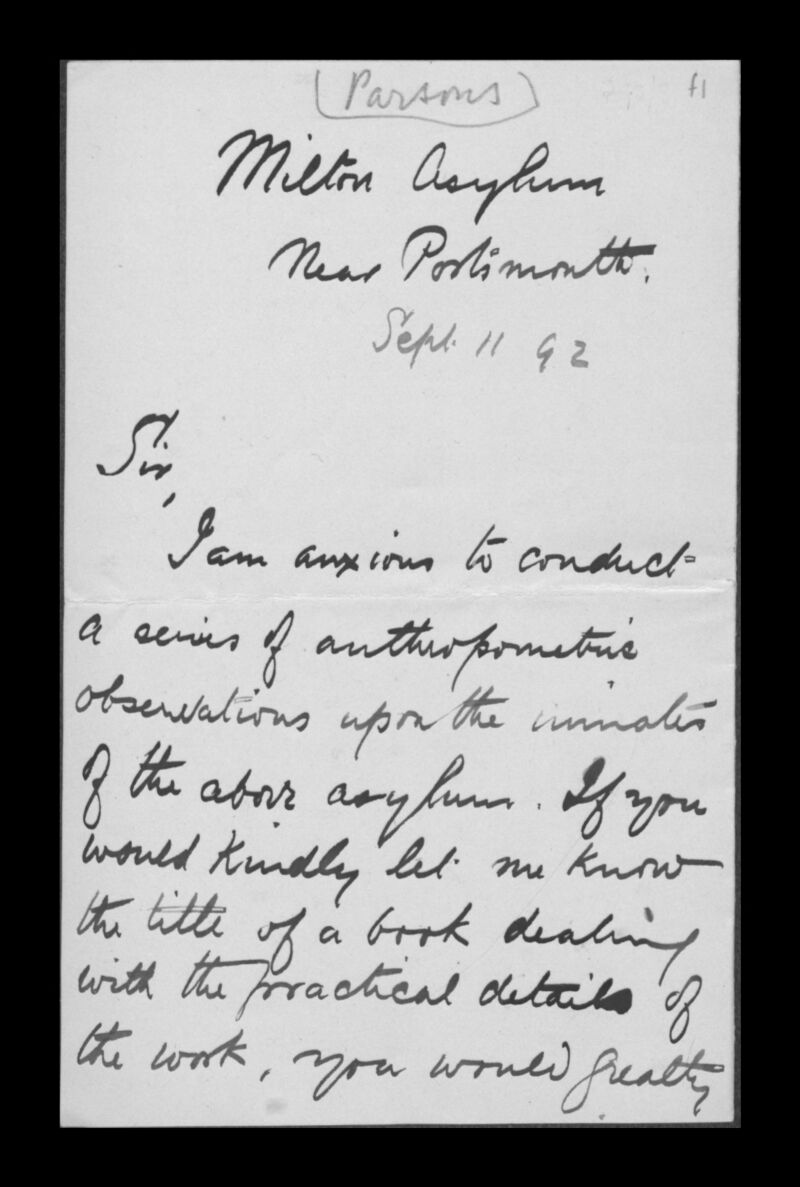 (Parsons)
f1
Milton Asylum
Near Portsmouth.
Sept. 11 92
Sir,
I am anxious to conduct
a series of anthropometric
observations upon the inmates
of the above asylum. If you
would kindly let me know
the title of a book dealing
with the practical details of
the work, you would greatly